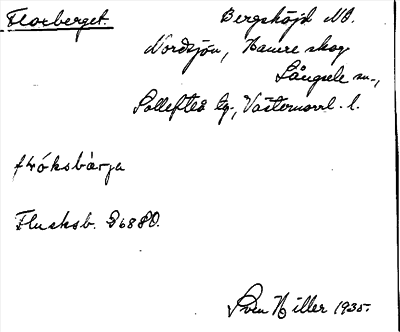 Floxberget. Bergshöjd NO.
Nordsjön, Hamre skog
Långsele sn.,
Sollefteå tg., Västernorrl. l.
Flusksb. 868 80.
Sven Hiller 1935.